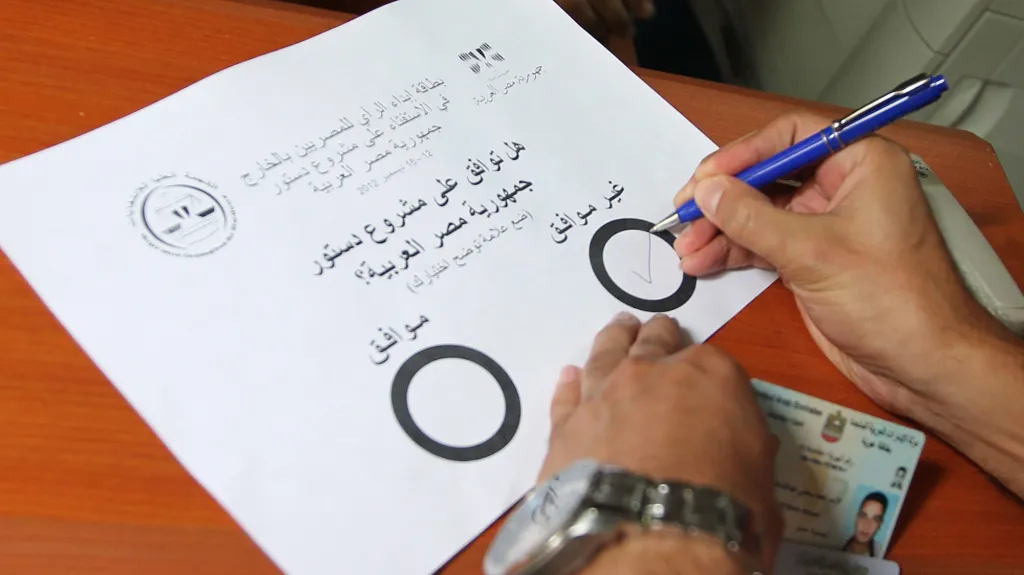 جمهورية مصر العربية
بطاقة إبداء الرأي للمصريين بالخارج
في الاستفتاء على مشروع دستور
جمهورية مصر العربية
12-15 ديسمبر 2012
هل توافق على مشروع دستور
جمهورية مصر العربية؟
(ضع علامة توضح اختيارك)
غير موافق
موافق
United Arab Emirates
دولة الإمارات العربية المتحدة
بطاقة هوية